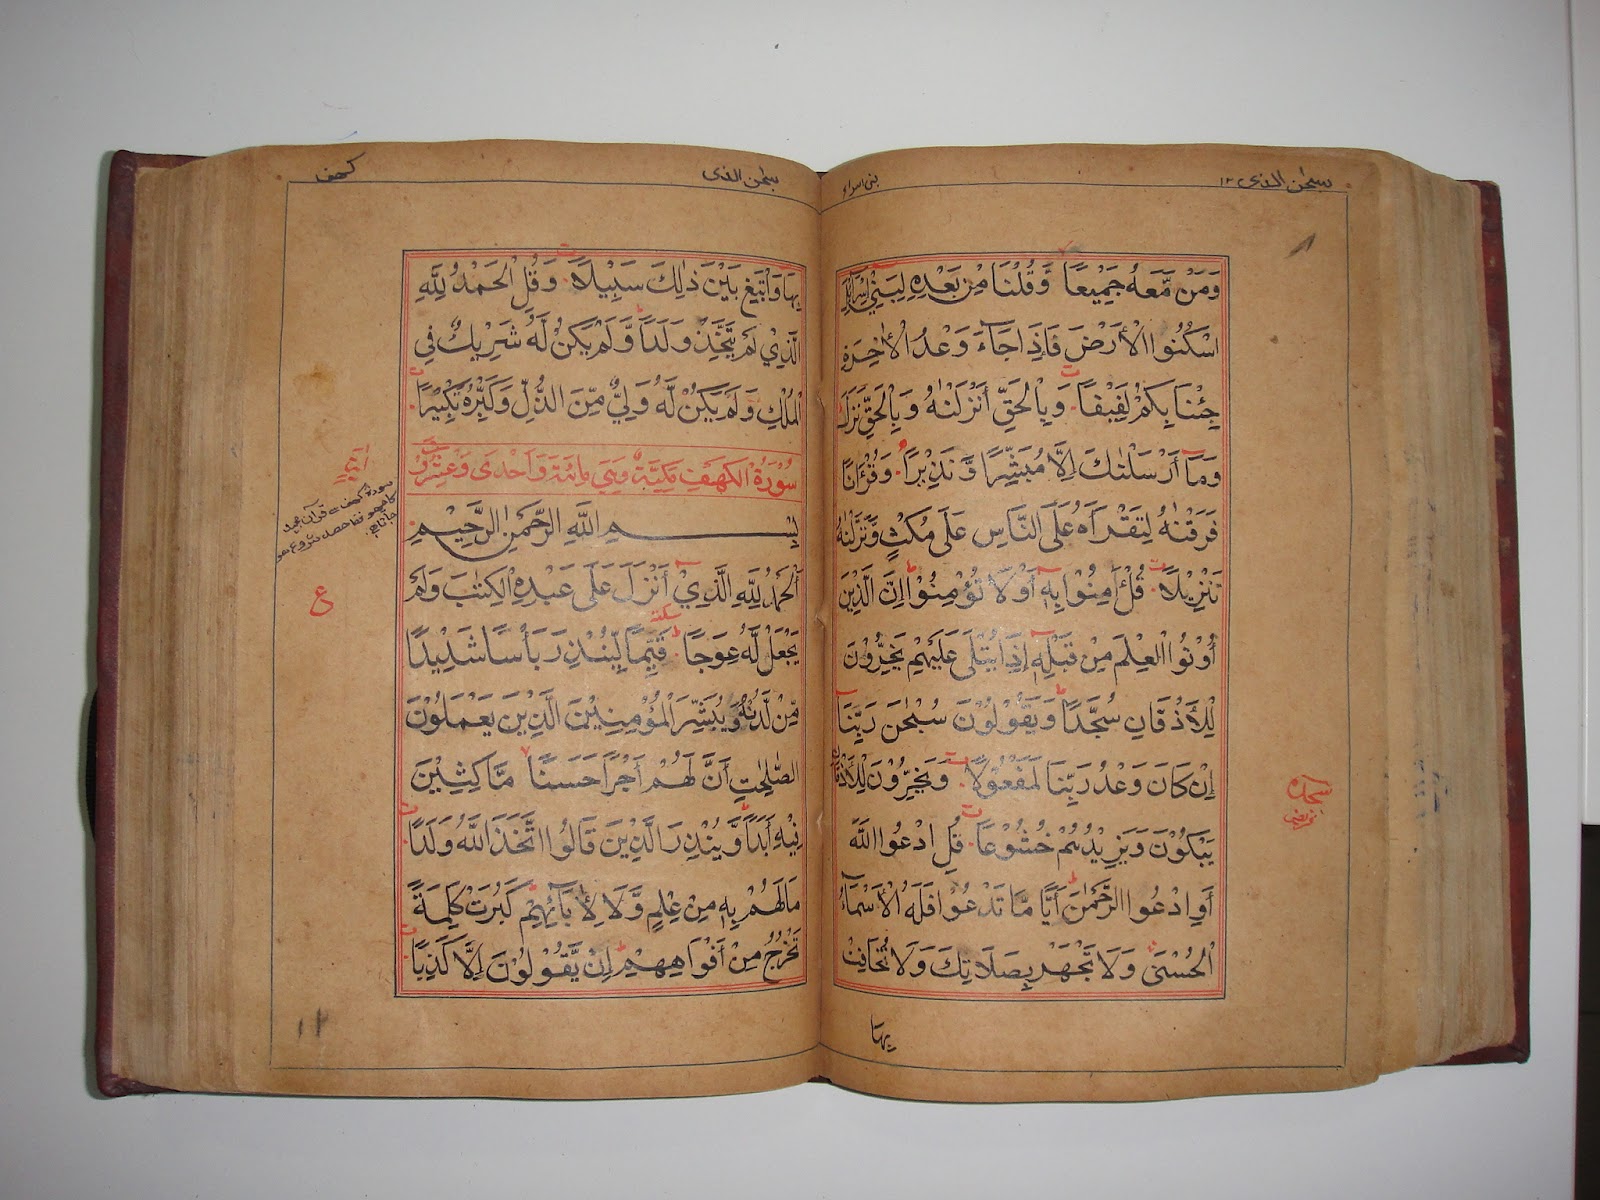 سبحٰن الذی ١٢
بنی اسراء
وَمَنْ مَّعَهُ جَمِيْعًا وَّقُلْنَا مِنْ بَعْدِهٖ لِبَنِيْٓ اِسْرَآءِيْلَ
اسْكُنُوا الْاَرْضَ فَاِذَا جَآءَ وَعْدُ الْاٰخِرَةِ
جِئْنَا بِكُمْ لَفِيْفًا وَبِالْحَقِّ اَنْزَلْنٰهُ وَبِالْحَقِّ نَزَلَ
وَمَآ اَرْسَلْنٰكَ اِلَّا مُبَشِّرًا وَّنَذِيْرًا وَقُرْءَانًا
فَرَقْنٰهُ لِتَقْرَاَهُ عَلَى النَّاسِ عَلٰى مُكْثٍ وَّنَزَّلْنٰهُ
تَنْزِيْلًا قُلْ اٰمِنُوْا بِهٖٓ اَوْ لَا تُؤْمِنُوْا اِنَّ الَّذِيْنَ
اُوْتُوا الْعِلْمَ مِنْ قَبْلِهٖٓ اِذَا يُتْلٰى عَلَيْهِمْ يَخِرُّوْنَ
لِلْاَذْقَانِ سُجَّدًا وَّيَقُوْلُوْنَ سُبْحٰنَ رَبِّنَآ
اِنْ كَانَ وَعْدُ رَبِّنَا لَمَفْعُوْلًا وَيَخِرُّوْنَ لِلْاَذْقَانِ
يَبْكُوْنَ وَيَزِيْدُهُمْ خُشُوْعًا قُلِ ادْعُوا اللّٰهَ
اَوِ ادْعُوا الرَّحْمٰنَ اَيًّا مَّا تَدْعُوْا فَلَهُ الْاَسْمَآءُ
الْحُسْنٰى وَلَا تَجْهَرْ بِصَلَاتِكَ وَلَا تُخَافِتْ
سجده
بها
سبحٰن الذی
کهف
بِهَا وَابْتَغِ بَيْنَ ذٰلِكَ سَبِيْلًا وَقُلِ الْحَمْدُ لِلّٰهِ
الَّذِيْ لَمْ يَتَّخِذْ وَلَدًا وَّلَمْ يَكُنْ لَّهُ شَرِيْكٌ فِى
الْمُلْكِ وَلَمْ يَكُنْ لَّهُ وَلِيٌّ مِّنَ الذُّلِّ وَكَبِّرْهُ تَكْبِيْرًا
سُوْرَةُ الْكَهْفِ مَكِّيَّةٌ وَهِيَ مِائَةٌ وَاَحْدٰى وَعِشْرُوْنَ
بِسْمِ اللّٰهِ الرَّحْمٰنِ الرَّحِيْمِ
اَلْحَمْدُ لِلّٰهِ الَّذِيْٓ اَنْزَلَ عَلٰى عَبْدِهِ الْكِتٰبَ وَلَمْ
يَجْعَلْ لَّهُ عِوَجًا قَيِّمًا لِّيُنْذِرَ بَاْسًا شَدِيْدًا
سكته
مِّنْ لَّدُنْهُ وَيُبَشِّرَ الْمُؤْمِنِيْنَ الَّذِيْنَ يَعْمَلُوْنَ
الصّٰلِحٰتِ اَنَّ لَهُمْ اَجْرًا حَسَنًا مَّاكِثِيْنَ
فِيْهِ اَبَدًا وَّيُنْذِرَ الَّذِيْنَ قَالُوا اتَّخَذَ اللّٰهُ وَلَدًا
مَالَهُمْ بِهٖ مِنْ عِلْمٍ وَّلَا لِاٰبَآئِهِمْ كَبُرَتْ كَلِمَةً
تَخْرُجُ مِنْ اَفْوَاهِهِمْ اِنْ يَّقُوْلُوْنَ اِلَّا كَذِبًا
ع
١٢